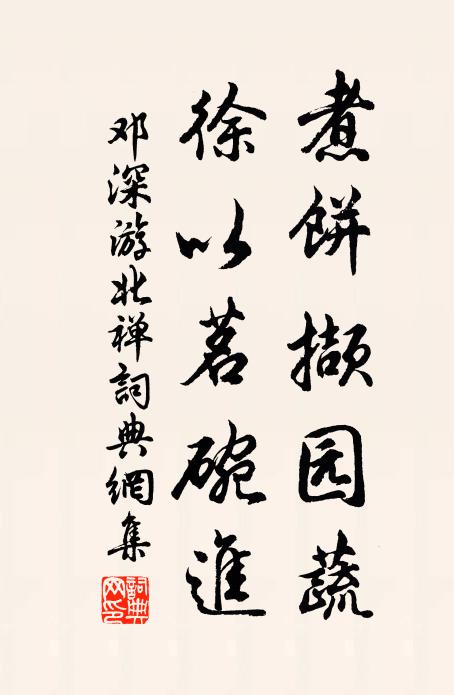 煮餅擷园蔬
徐以茗碗進
邓深游北禅詞典網集
詞典网印